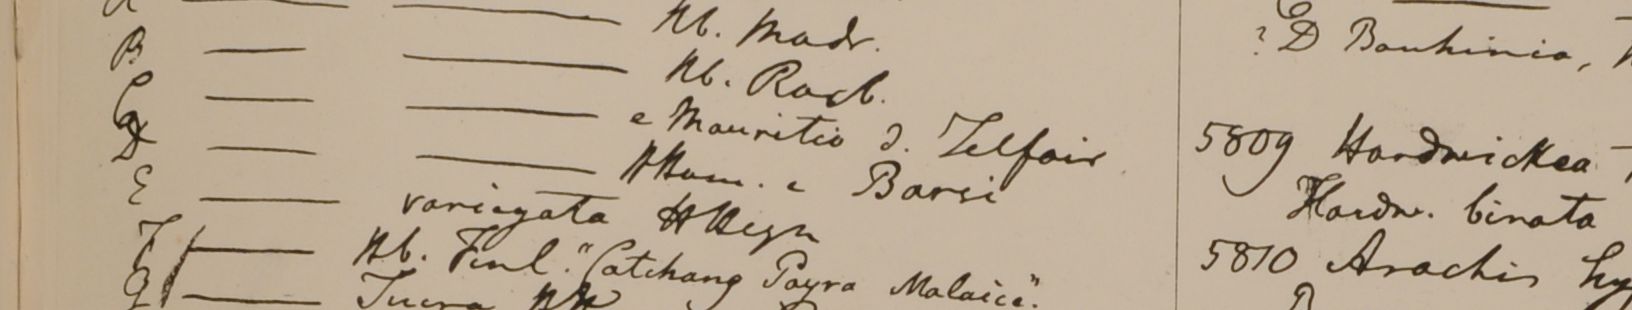 A — — Hb. Madr.
B — — Hb. Roxb.
C — — e Mauritio d. Telfair
D — — HHam. e Barsi
E — variegata HHeyn
F — Hb. Finl. "Catchang Payra Malaice".
G —
? D Bauhinia,
5809 Hardwickea
Hardw. binata
5810 Arachis hy